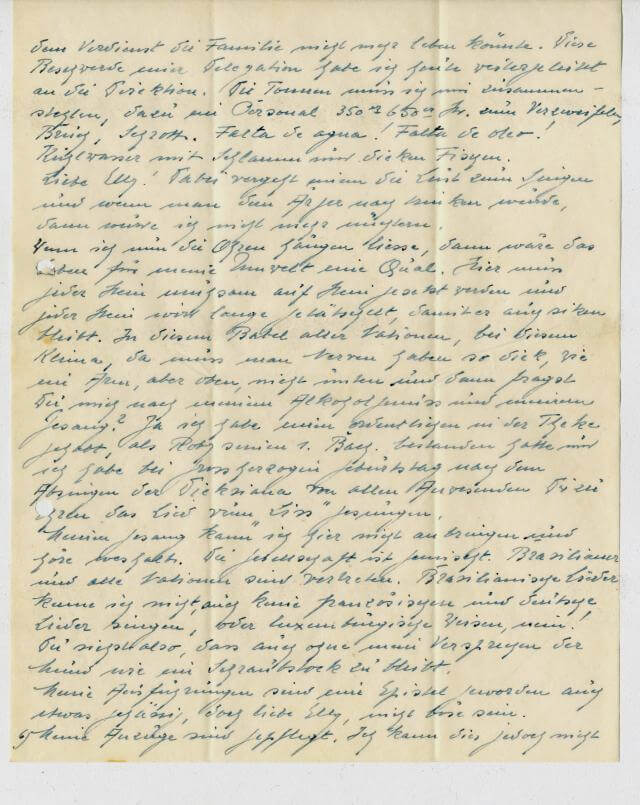 dem Verdienst die Familie nicht mehr leben könnte. Diese
Beschwerde einer Delegation habe ich heute weitergeleitet
an die Direktion. Die Tonnen muss ich mir zusammen-
stehlen, dazu ein Personal 350 650 Fr. zum Verzweifeln,
Bruch, Schrott. Falta de agua! Falta de oleo!
Kühlwasser mit Schlamm und dicken Fischen.
Liebe Elly! Dabei vergeht einem die Lust zum Singen
und wenn man den Ärger nach trinken würde,
dann würde ich nicht mehr nüchtern.
Wenn ich nun die Ohren hängen liesse, dann wäre das
Leben für meine Umwelt eine Qual. Hier muss
jeder Stein mühsam auf Stein gesetzt werden und
jeder Stein wird lange getätschelt, damit er auch sitzen
bleibt. In diesem Babel aller Nationen, bei diesem
Klima, da muss man Nerven haben so dick, wie
ein Arm, aber oben, nicht unten und dann fragst
Du mich nach meinem Alkoholgenuss und meinem
Gesang? Ja ich habe einen ordentlichen in der Theke
gehabt, als Roby seinen 1. Bac. bestanden hatte und
ich habe bei Grossherzogin Geburtstag nach dem
Absingen der von allen Anwesenden
das Lied vum Liss" gesungen.
Meinen Gesang kann ich hier nicht anbringen und
höre weshalb. Die Gesellschaft ist gemischt. Brasilianer
und alle Nationen sind vertreten. Brasilianische Lieder
kenne ich nicht, auch keine französischen und deutsche
Lieder singen, oder luxemburgische Weisen, nein!
Du siehst also, dass auch ohne mein Versprechen der
Mund wie ein Schraubstock zu bleibt.
Meine Ausführungen sind eine Epistel geworden auch
etwas gehässig, doch liebe Elly, nicht böse sein.
Meine Anzüge sind gepflegt. Ich kann dies jedoch nicht